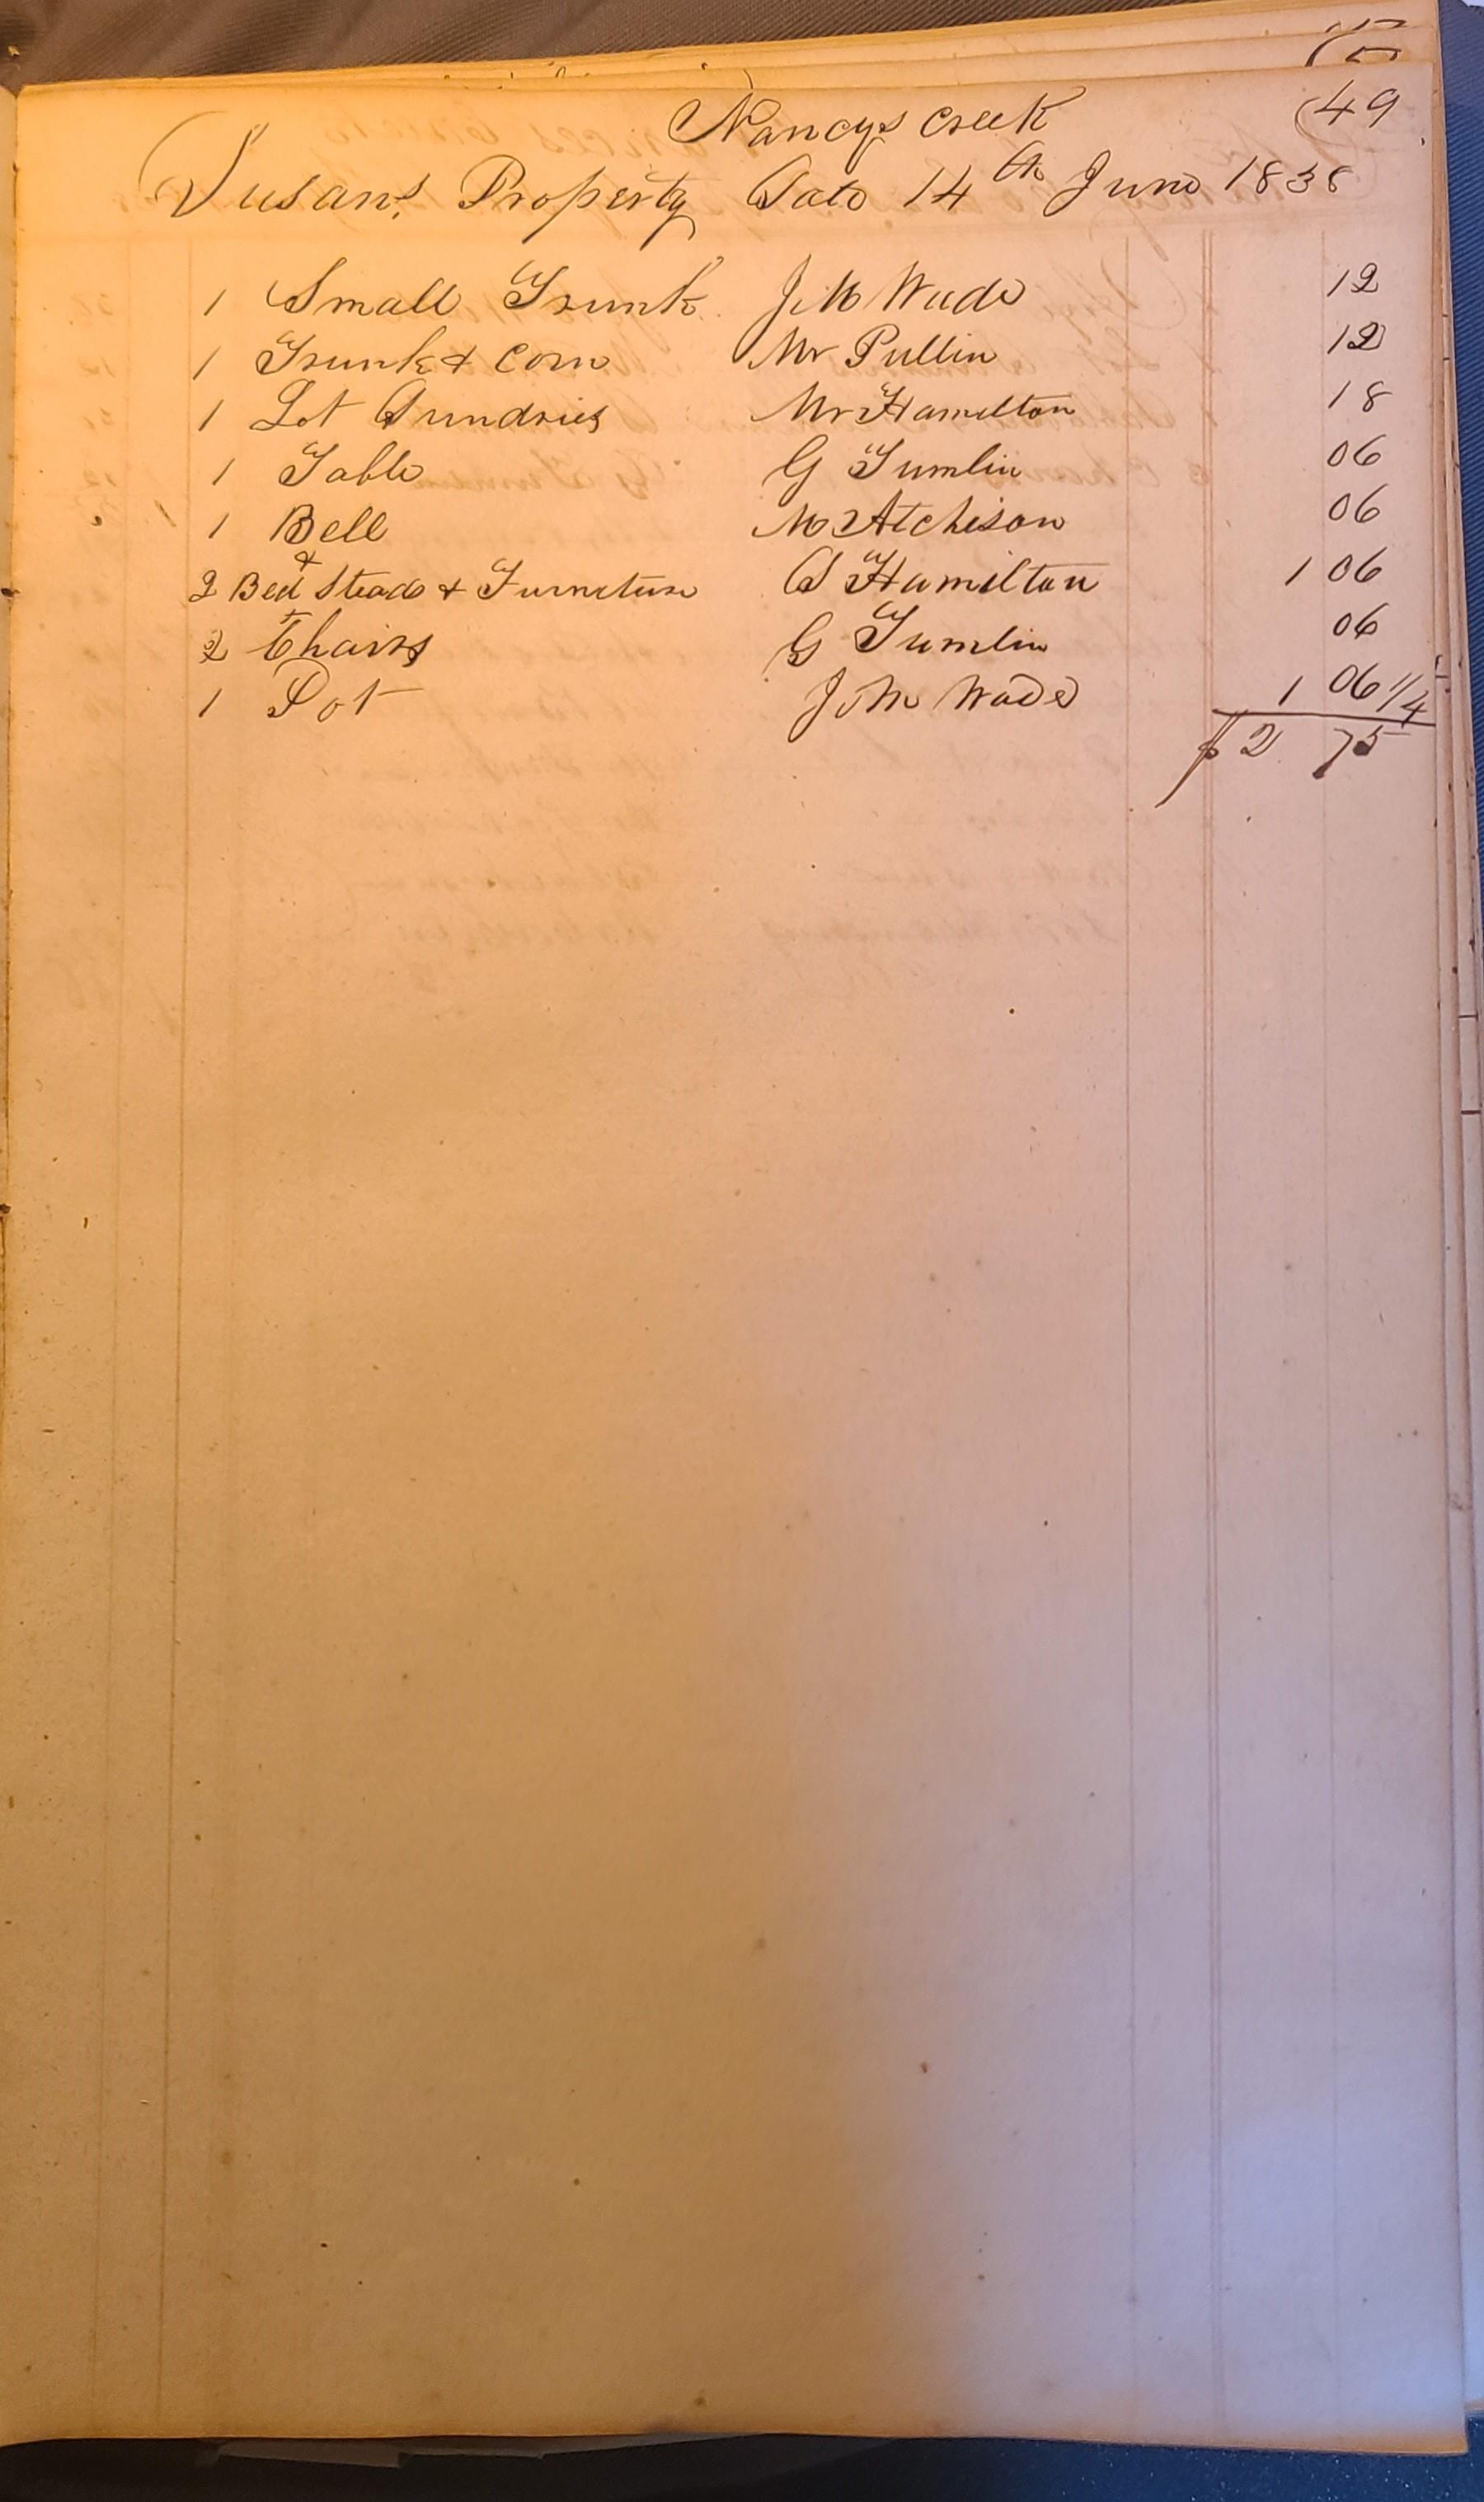 49
Nancys Creek
Susans Property Sale 14th June 1838
1 Small Trunk J M Wade 12
1 Trunk & Corn Mr Pullin 12
1 Lot Sundries Mr Hamilton 18
1 Table G Tumlin 06
1 Bell M Atchison 06
2 Bed & Steads & Furniture S Hamilton 1 06
2 Chairs G Tumlin 06
1 Pot J M Wade 1 06 1/4
$ 2 75